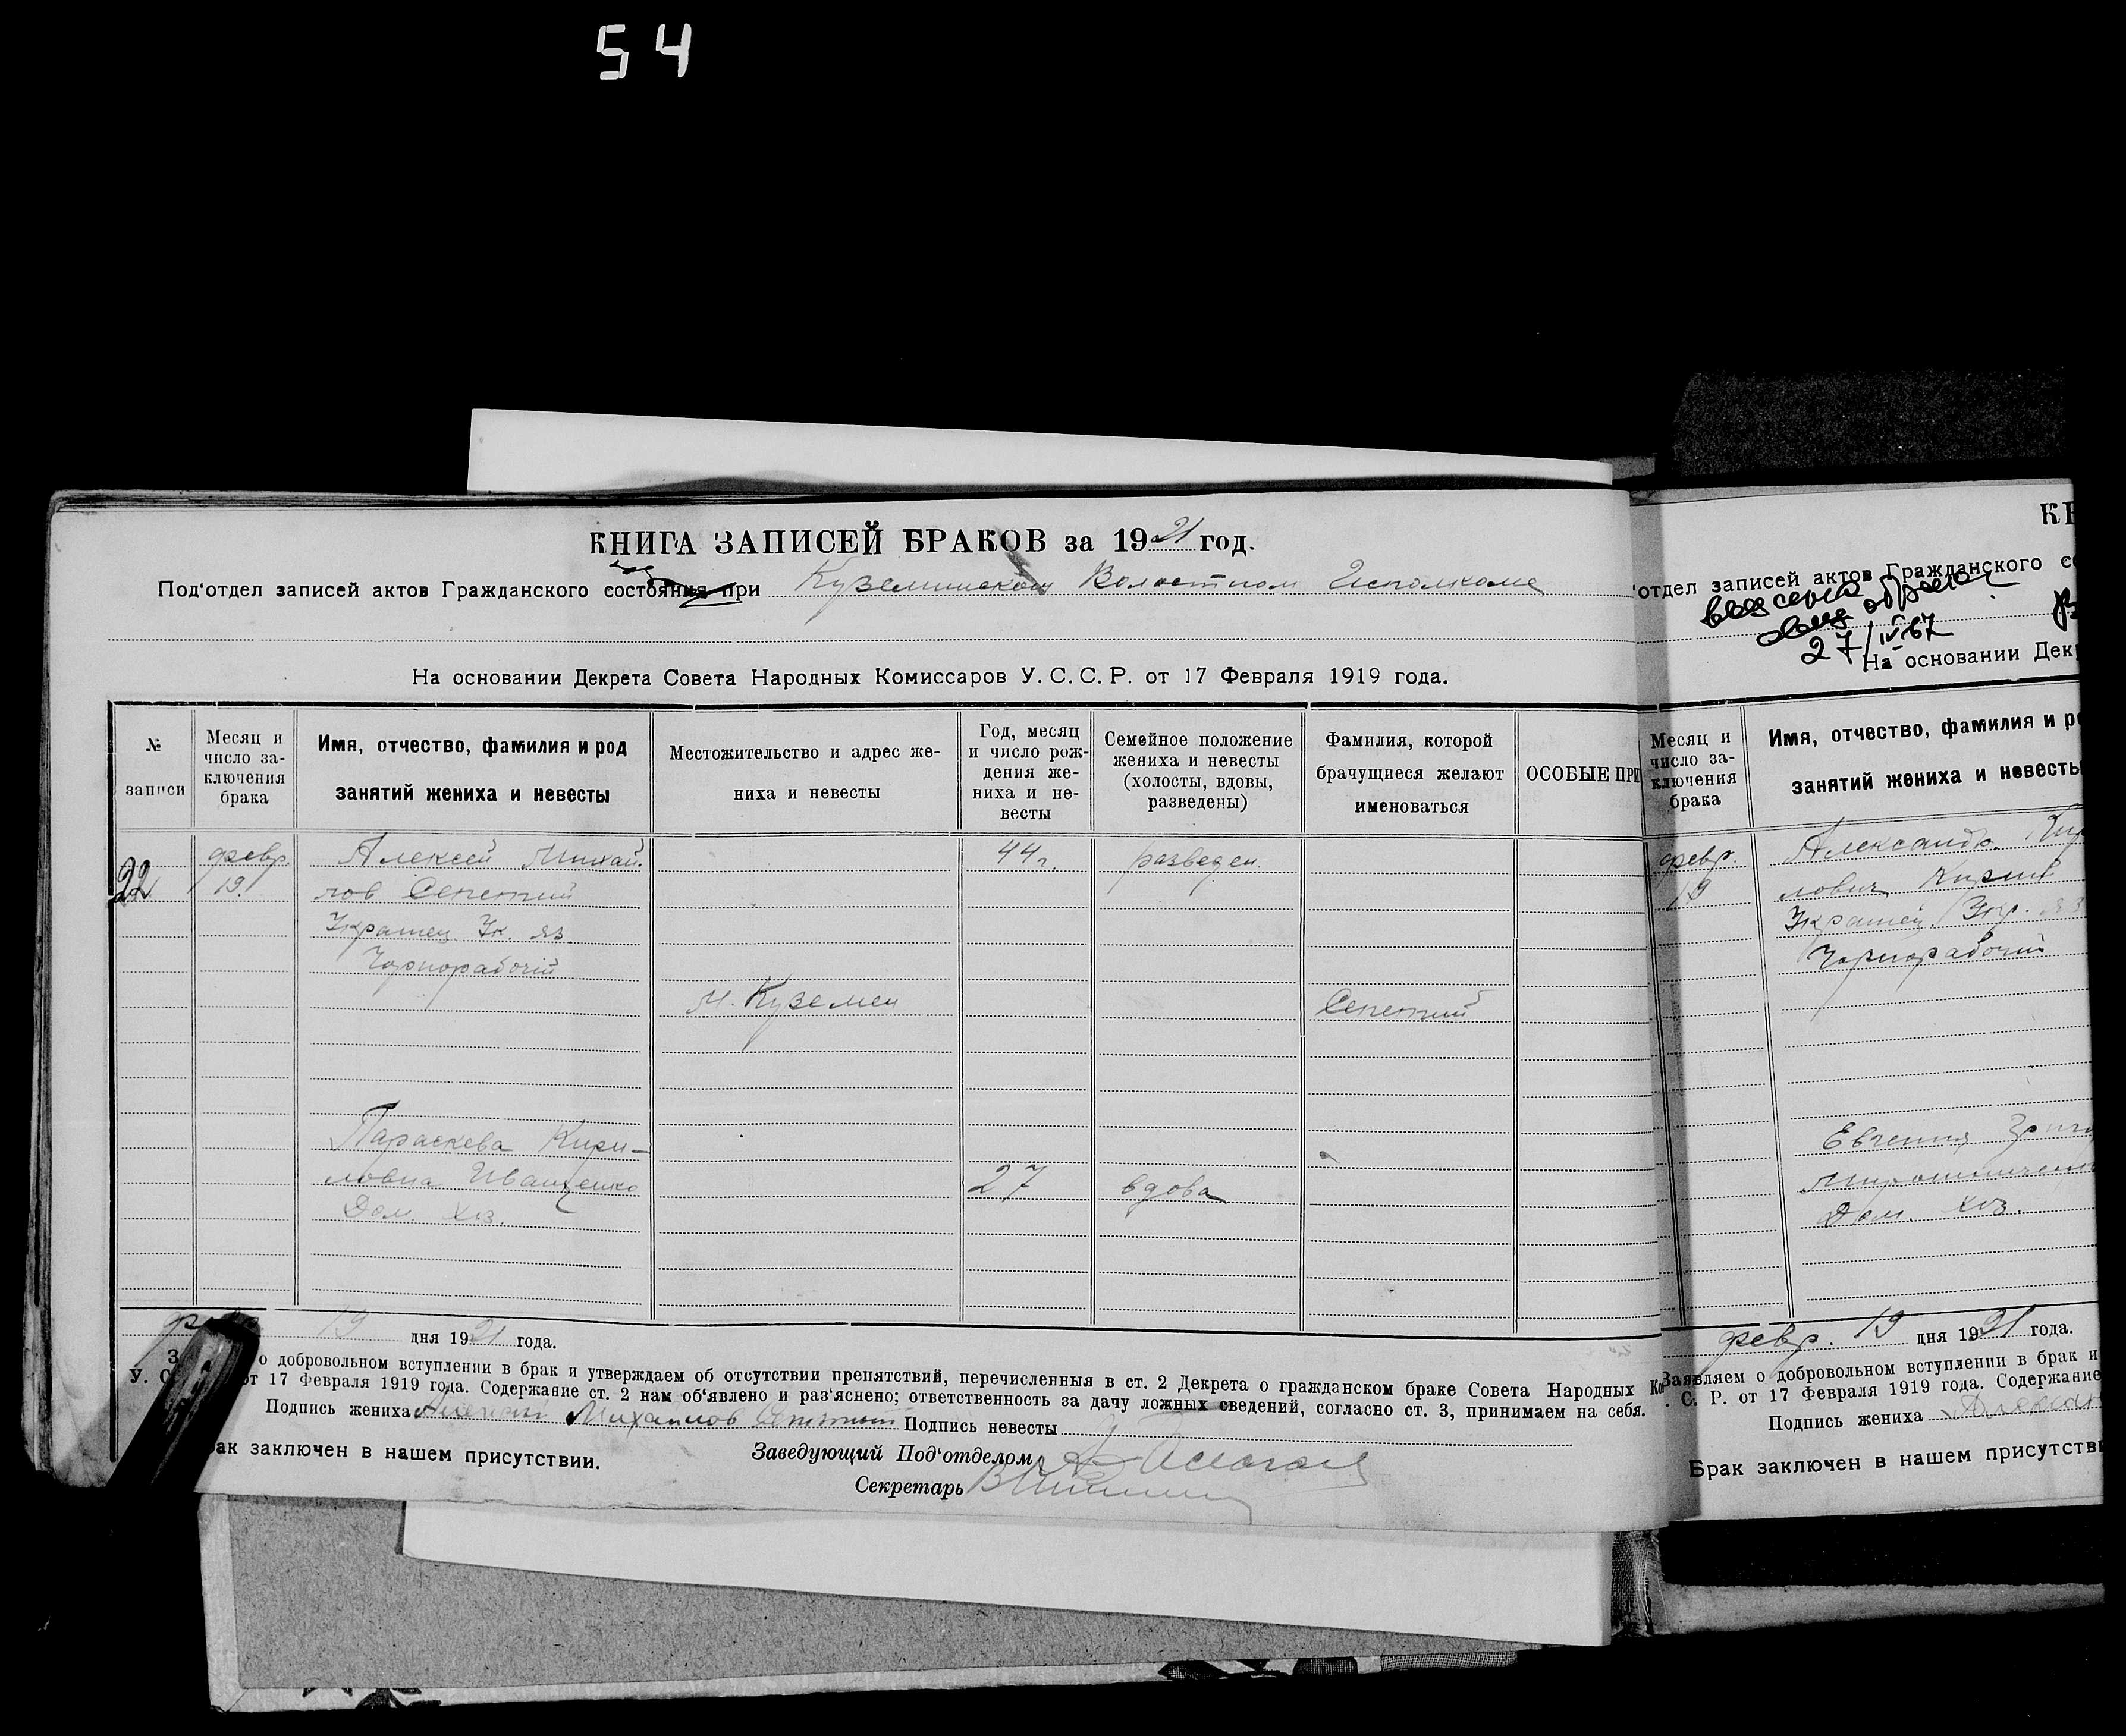 54
КНИГА ЗАПИСЕЙ БРАКОВ за 1921 год.
Под‘отдел записей актов Гражданского состояния при Куземинском Волостном Исполкоме
На основании Декрета Совета Народных Комиссаров У. С. С. Р. от 17 Февраля 1919 года.
№ записи
Месяц и число за-
ключения
брака
Имя, отчество, фамилия и род
занятий жениха и невесты
Местожительство и адрес же-
ниха и невесты
Год, месяц
и число рож-
дения же-
ниха и не-
весты
Семейное положение
жениха и невесты
(холосты, вдовы,
разведены)
Фамилия, которой
брачущиеся желают
именоваться
ОСОБЫЕ ПРИ
22
февр.
19.
Алексей Михай-
лов
Украинец Ук. яз.
Чернорабочий
44 г.
разведен.
м. Куземен
Параскева Кири-
ловна Иващенко
Дом. хоз.
27
вдова
февр 19 дня 1921 года.
о добровольном вступлении в брак и утверждаем об отсутствии препятствий, перечисленныя в ст. 2 Декрета о гражданском браке Совета Народных Ко
У. С от 17 Февраля 1919 года. Содержание ст. 2 нам об‘явлено и раз‘яснено; ответственность за дачу ложных сведений, согласно ст. 3, принимаем на себя.
Подпись жениха Алексей Михайлов Подпись невесты
рак заключен в нашем присутствии.
Заведующий Под‘отделом
Секретарь
КН
‘отдел записей актов Гражданского со
27/IV-67
На основании Декр
Месяц и
число за-
ключения
брака
Имя, отчество, фамилия и ро
занятий жениха и невесты
февр.
19
Александр Кир
лович
Украинец. Укр. яз
Чернорабочий
Евгения Григо
Мирошниченко
Дом. хоз.
февр. 19 дня 1921 года.
Заявляем о добровольном вступлении в брак и
. С. Р. от 17 Февраля 1919 года. Содержание
Подпись жениха Алексан
Брак заключен в нашем присутстви